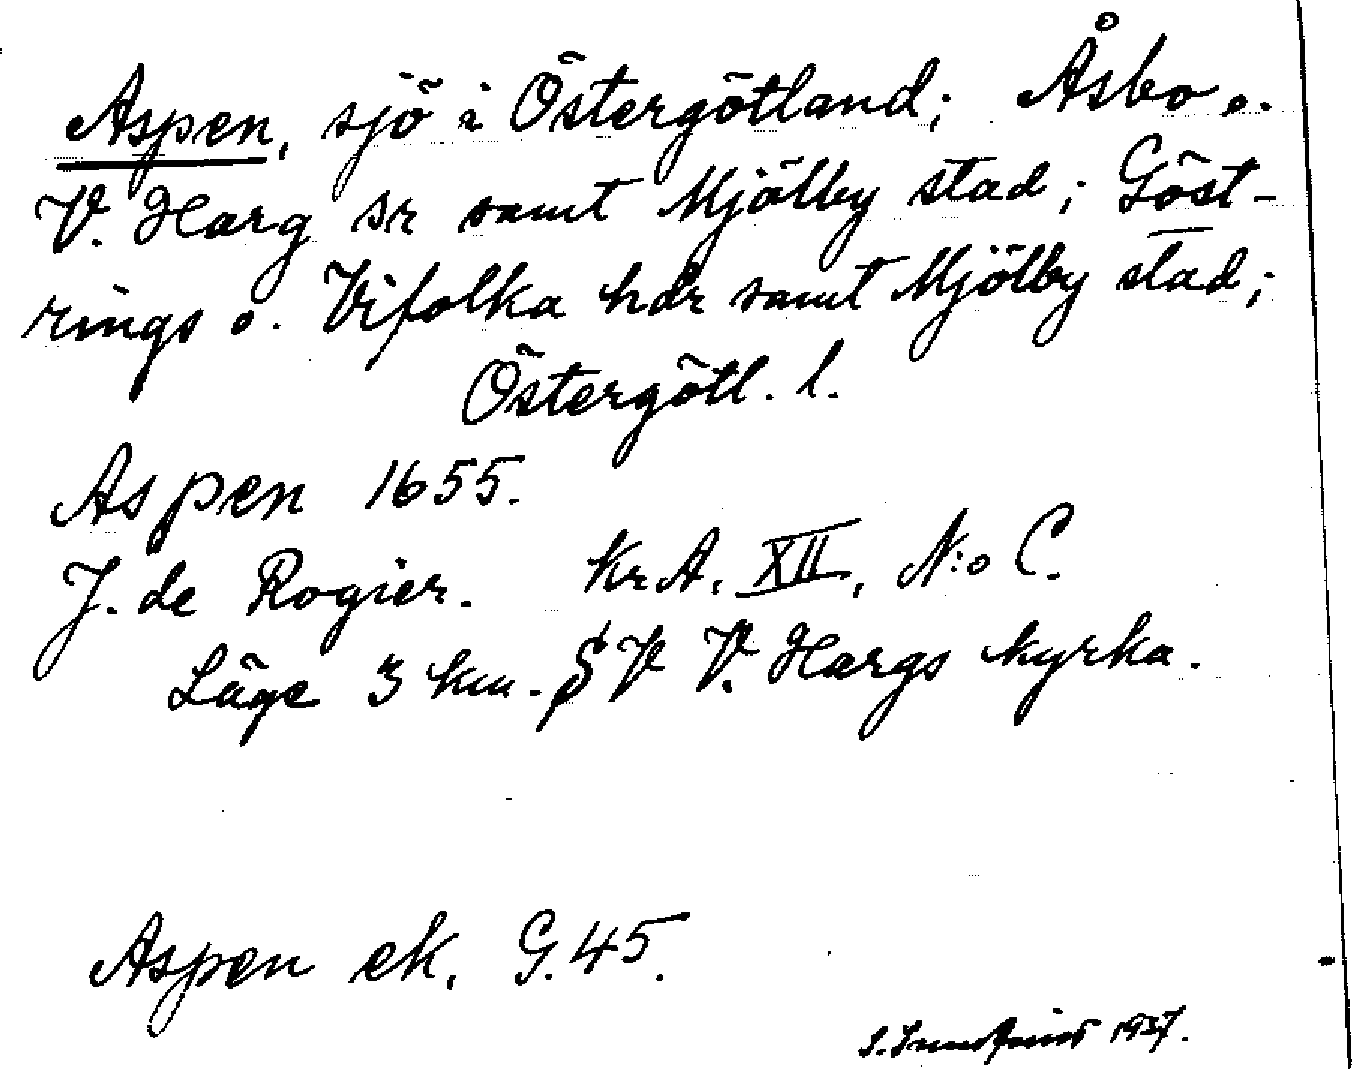 Aspen, sjö i Östergötland; Åsbo o.
V. Harg sr samt Mjölby stad; Göst-
rings o. Vifolka hdr samt Mjölby stad;
Östergötl. l.
Aspen 1655.
J. de Rogier. KrA, XII, N:o C.
Läge 3 km. V V. Hargs kyrka.
Aspen ek. G. 45.
1937.